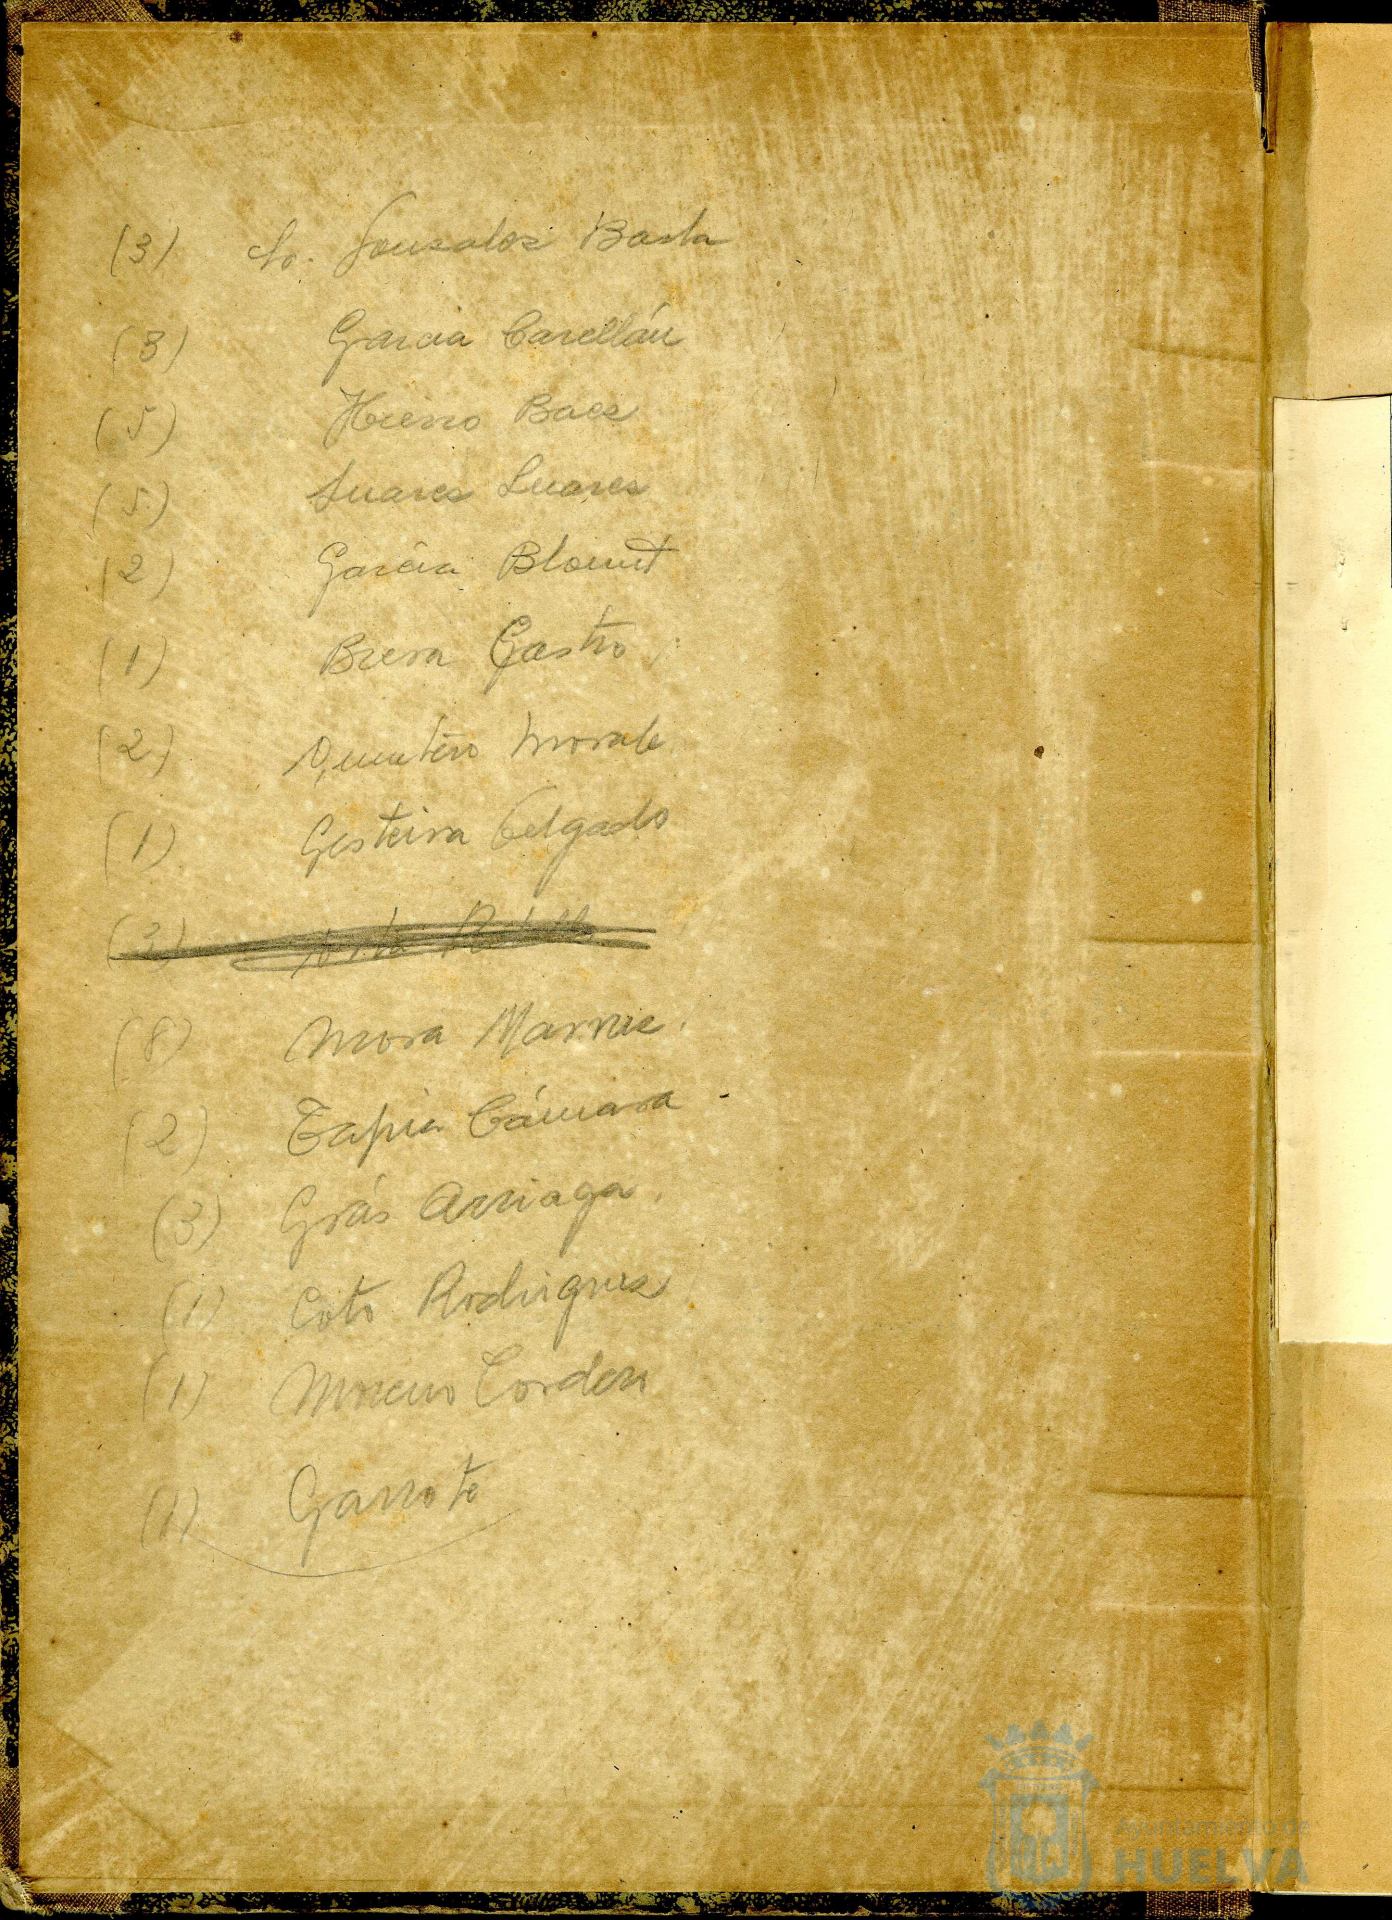 (3) Sr. Gonzalez Barba
(3) Garcia Carellán
(5) Hierro Baez
(5) Suarez Suarez
(2) Garcia Blount
(1) Brera Gastro
(2) Quintero Morale
(1) Gesteira Delgado
(3)
(8) Mora Marrue
(2) Tapia Cámara -
(3) Grás Arriaga.
(1) Coto Rodriguez
(1) Moreno Cordero
(1) Garrote
Ayuntamiento de
HUELVA